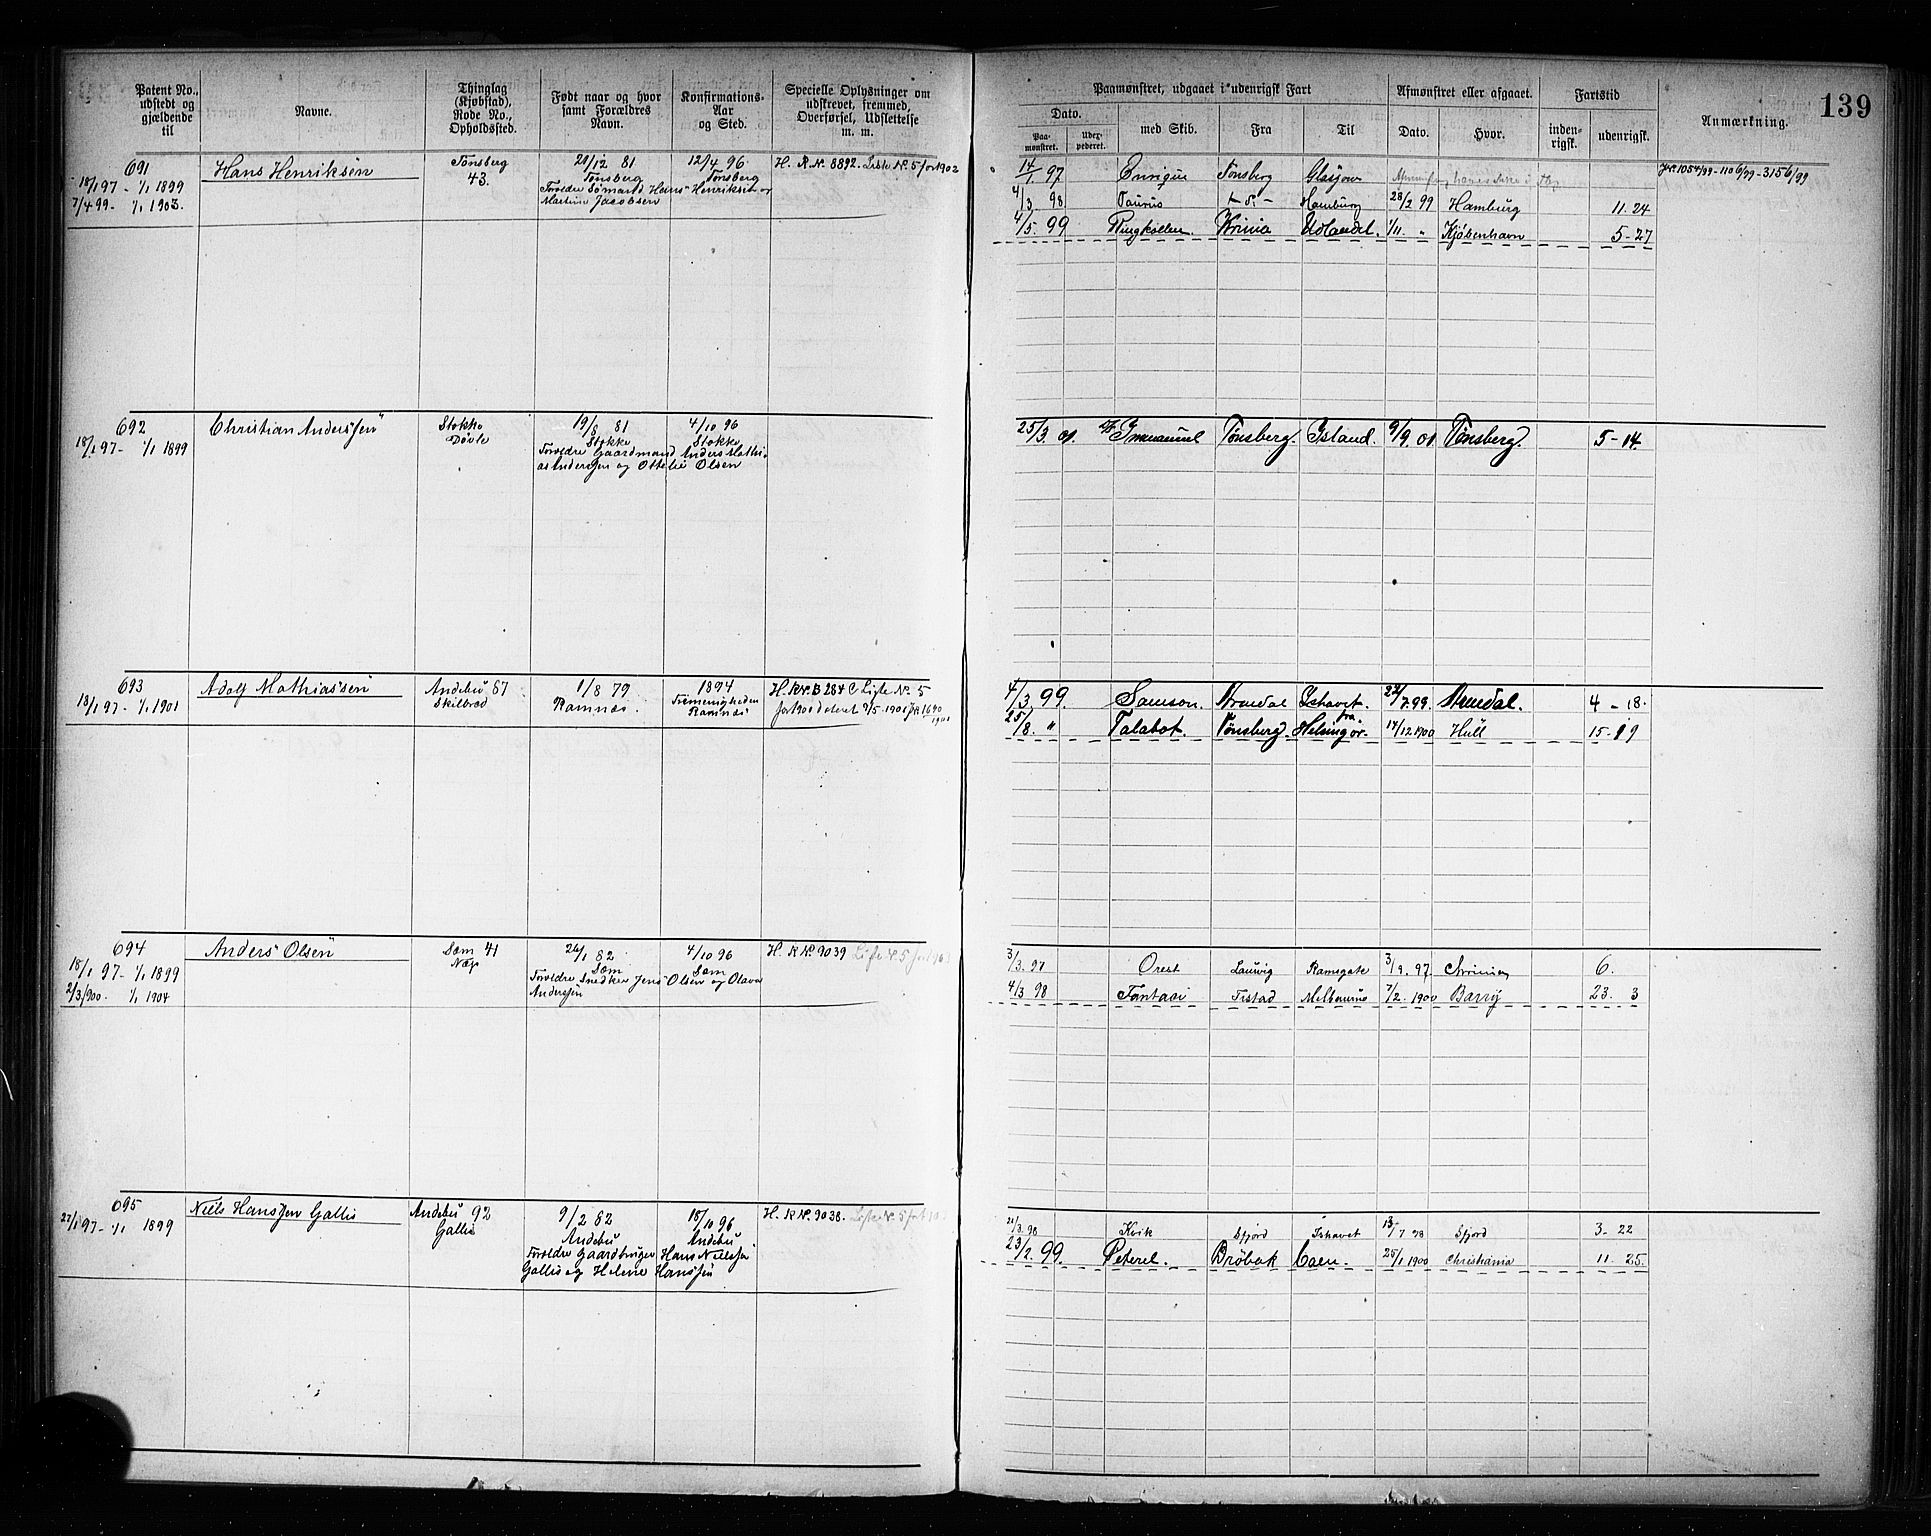 139
Patent No., udstedt og gjældende til
Navne.
Thinglag (Kjøbstad), Rode No., Opholdssted.
Født naar og hvor samt Forældres Navn.
Konfirmations-Aar og Sted.
Specielle Oplysninger om udskrevet, fremmed, Overførsel, Udslettelse m. m.
Paamønstret, udgaaet i udenrigsk Fart
Dato.
Paamønstret.
med Skib.
Fra
Til
Afmønstret eller afgaaet.
Dato.
Hvor.
Fartstid
indenrigsk.
udenrigsk.
Anmærkning.
691
18/1 97 - 1/1 1899
7/4 99 - 1/1 1903.
Hans Henriksen
Tønsberg
43.
21/12 81
Tønsberg
Forældre Sømand Hans Henriksen og
Martine Jacobsen
12/4 96
Tønsberg
H. R. N. 8892. Liste N. 5 for 1902
14/1 97 Enrique Tønsberg Glasgow
4/3 98 Taurus Hamburg 28/2 99 Hamburg 11. 24
4/5. 99 Ringkollen. Udlandet. 1/11. " Kjøbenhavn 5 - 27
Jr. 1054/99 - 1106/99 - 3156/99
692
18/1 97 - 1/1 1899
Christian Anderssen
Stokke
Døvle
19/8 81
Stokke
Forældre Gaardmand Anders Mathi-
as Anderssen og Ottelie Olsen
4/10 96
Stokke
25/3. 01. Immanuel Tønsberg. Island. 9/9. 01 Tønsberg. 5 - 14.
693
18/1 97 - 1/1 1901
Adolf Mathiassen
Andebu 87
Skilbred
1/8 79
Ramnæs.
1894
Frimenigheden
Ramnæs
H. R Nr. B 284 C Liste N. 5
for 1900 dateret 9/5 1901 Jr 1690
1901
4/3 99. Samson. Arendal Ishavet. 22/7. 99. Arendal. 4 - 18.
25/8. " Talabot. Tønsberg fra Helsingør. 14/12 1900 Hull 15 - 19
694
18/1 97 - 1/1 1899
2/3 900. 1/1 1904
Anders Olsen
Sæm 41
Næs
26/1 82
Sæm
Forældre Snedker Jens Olsen og Olava
Anderssen
4/10 96
Sæm
H. R N. 9039 Liste N. 5
3/3. 97 Orest Laurvig Ramsgate 3/9. 97 6.
4/3 98 Fantasi Tistad Melbourne 7/2. 1900 Barry 23. 3
695
27/1 97 - 1/1 1899
Niels Hanssen Gallis
Andebu 92
Gallis
9/2 82
Andebu
Forældre Gaardbruger Hans Nielssen
Gallis og Helene Hanssen
18/10 96
Andebu
H. R N. 9038. Liste N. 5
21/3. 98 Kvik Sfjord Ishavet 13/7 98 Sfjord 3. 22
23/2. 99. Peterel. Drøbak Caen. 25/1 1900 Christiania 11. 25.